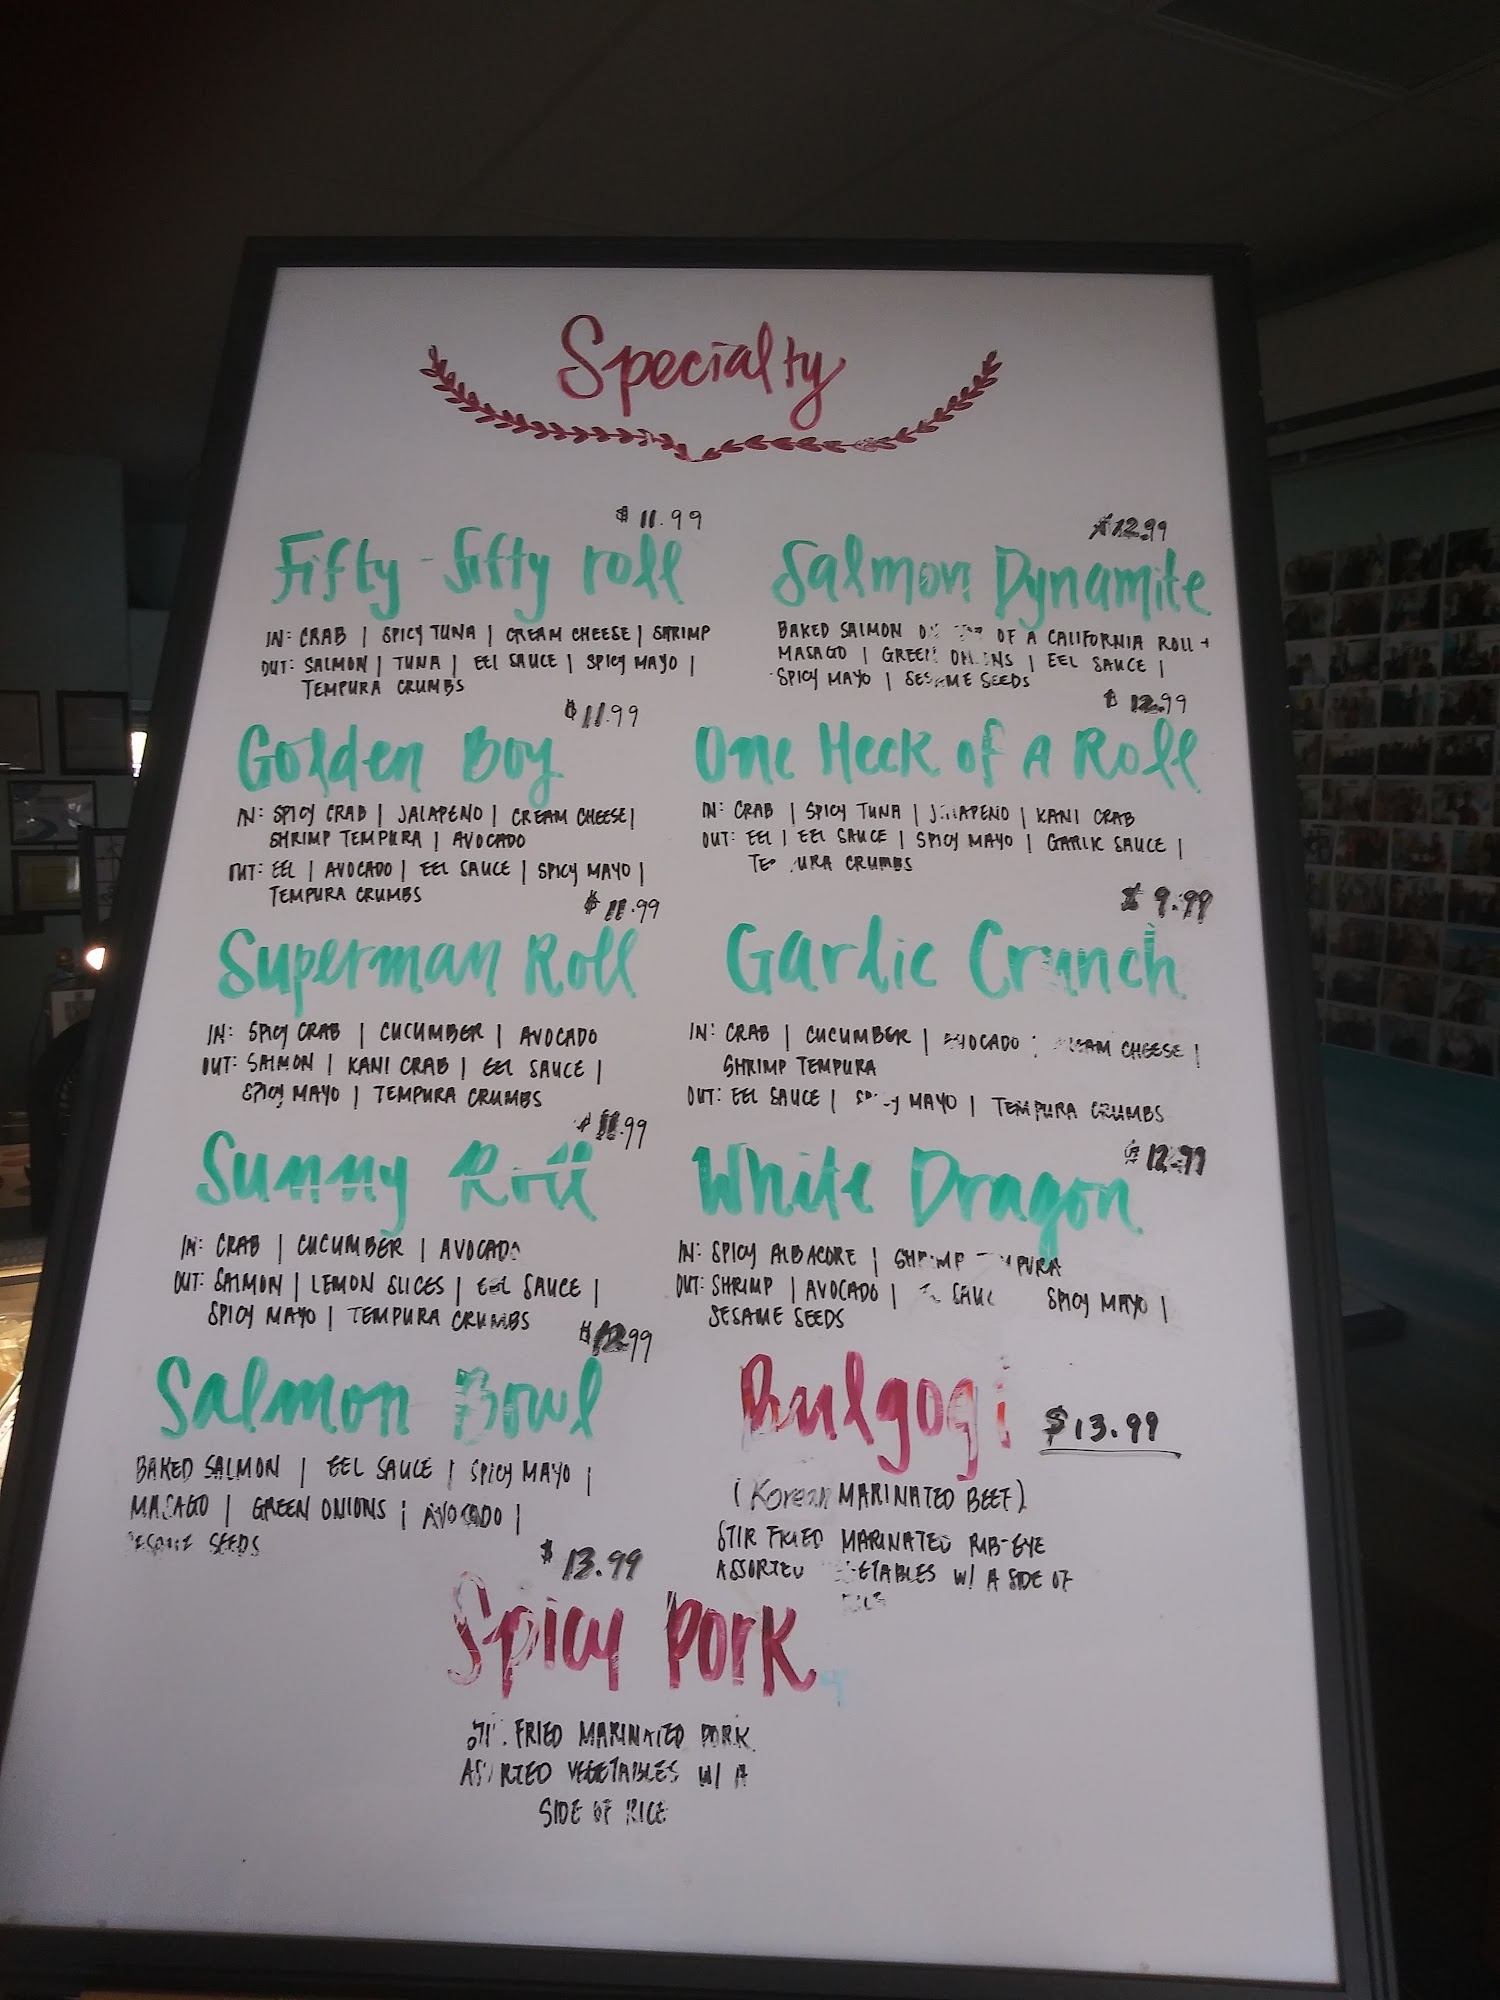 Specialty
$11.99
Fifty-fifty roll
IN: CRAB | SPICY TUNA | CREAM CHEESE | SHRIMP
OUT: SALMON | TUNA | EEL SAUCE | SPICY MAYO |
TEMPURA CRUMBS
$11.99
Golden Boy
IN: SPICY CRAB | JALAPENO | CREAM CHEESE |
SHRIMP TEMPURA | AVOCADO
OUT: EEL | AVOCADO | EEL SAUCE | SPICY MAYO |
TEMPURA CRUMBS
$11.99
Superman Roll
IN: SPICY CRAB | CUCUMBER | AVOCADO
OUT: SALMON | KANI CRAB | EEL SAUCE |
SPICY MAYO | TEMPURA CRUMBS
$11.99
Sunny Roll
IN: CRAB | CUCUMBER | AVOCADO
OUT: SALMON | LEMON SLICES | EEL SAUCE |
SPICY MAYO | TEMPURA CRUMBS
$12.99
Salmon Bowl
BAKED SALMON | EEL SAUCE | SPICY MAYO |
MASAGO | GREEN ONIONS | AVOCADO |
SESAME SEEDS
$12.99
Salmon Dynamite
BAKED SALMON OF A CALIFORNIA ROLL +
MASAGO | GREEN ONIONS | EEL SAUCE |
SPICY MAYO | SESAME SEEDS
$12.99
One Heck of A Roll
IN: CRAB | SPICY TUNA | JALAPENO | KANI CRAB
OUT: EEL | EEL SAUCE | SPICY MAYO | GARLIC SAUCE |
TEMPURA CRUMBS
$9.99
Garlic Crunch
IN: CRAB | CUCUMBER | AVOCADO | CREAM CHEESE |
SHRIMP TEMPURA
OUT: EEL SAUCE | SPICY MAYO | TEMPURA CRUMBS
$12.99
White Dragon
IN: SPICY ALBACORE | SHRIMP TEMPURA
OUT: SHRIMP | AVOCADO | EEL SAUCE SPICY MAYO |
SESAME SEEDS
Bulgogi $13.99
(Korean MARINATED BEEF)
STIR FRIED MARINATED RIB-EYE
ASSORTED VEGETABLES W/ A SIDE OF
$13.99
Spicy Pork
STIR FRIED MARINATED PORK
ASSORTED VEGETABLES W/ A
SIDE OF RICE